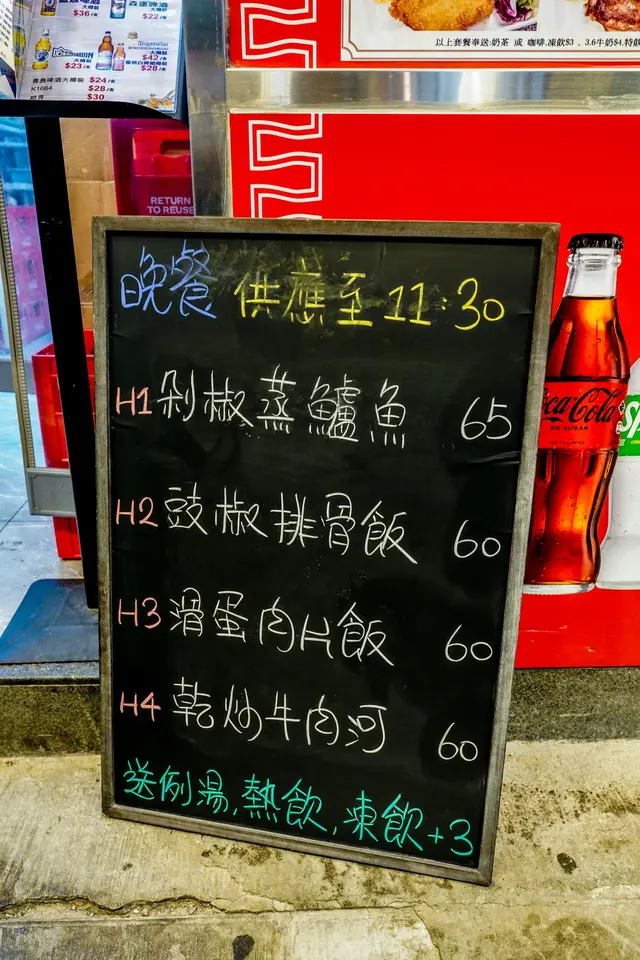 $36/支
$22/支
$23/支
$42/支
$28/支
青島啤酒大樽裝 $24/支
K1664 $28/支
$30
以上套餐奉送:奶茶 或 咖啡.凍飲$3 . 3.6牛奶$4.特飲
RETURN
TO REUSE
晚餐 供應至11:30
H1 剁椒蒸鱸魚 65
H2 豉椒排骨飯 60
H3 滑蛋肉片飯 60
H4 乾炒牛肉河 60
送例湯,熱飲,凍飲+3
Coca-Cola
NO SUGAR